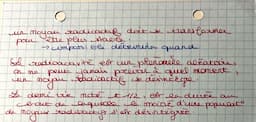 un noyau radioactif doit se transformer
pour être plus stable
→ impossible déterminer quand
La radioactivité est un phénomène aléatoire
on ne peut jamais prévoir à quel moment
un noyau radioactif se désintègre
La demi-vie noté t 1/2, est la durée au
bout de laquelle la moitié d'une population
de noyaux radioactifs s'est désintégrée